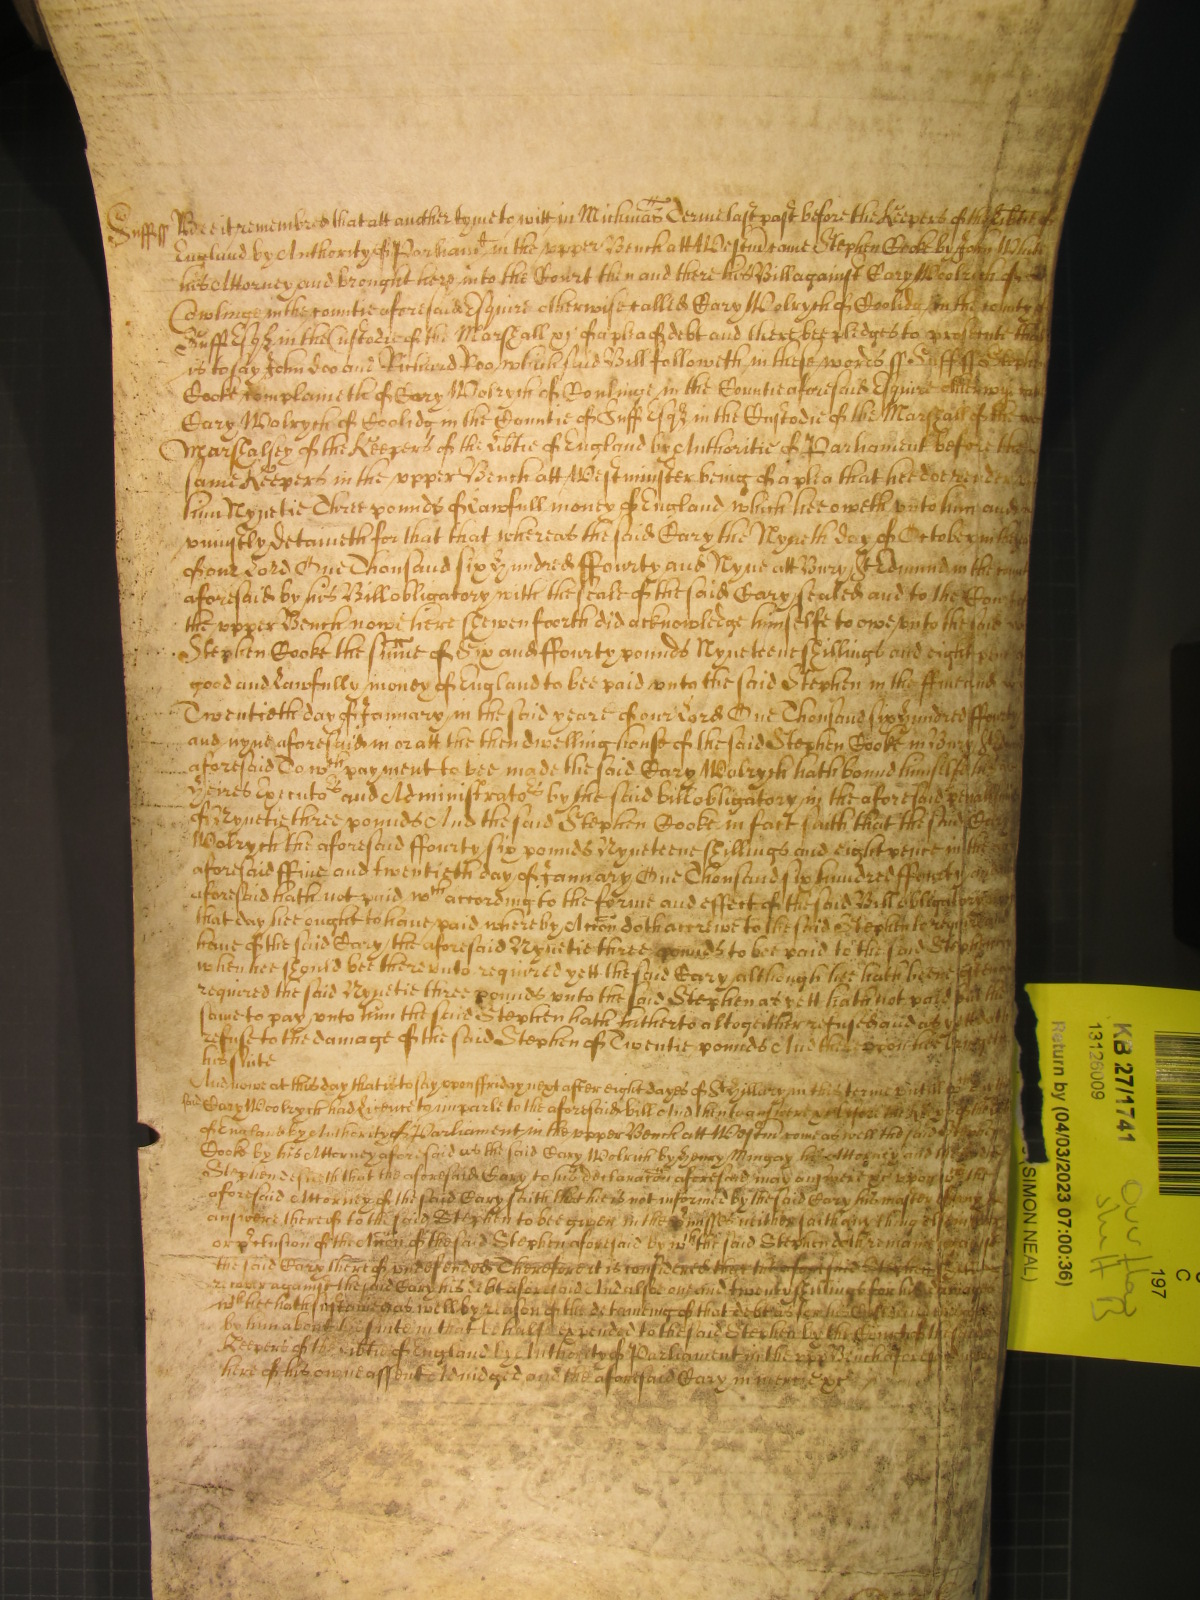 Suff ss Bee it remembred that att another tyme to witt in Michmas Terme last past before the Keepers of the Libtie of
England by Authority of Parliamt in the upper Bench att Westm came Stephen Cooke by John White
his Attorney and brought here into the Court then and there his Bill against Cary Woolrich of
Cowlinge in the countie aforesaid Esquire otherwise called Cary Wolrych of Coolidg in the county of
Suff Esqr in the Custodie of the Marshall &c of a plea of debt and there bee pledges to prosecute that
is to say John Doo and Richard Roo which said Bill followeth in these words ss Suff ss Stephen
Cooke complaineth of Cary Wolrych of Coulinge in the Countie aforesaid Esquire otherwise
Cary Wolrych of Coolidg in the Countie of Suff Esqr in the Custodie of the Marshall of the
Marshalsey of the Keepers of the Libtie of England by Authoritie of Parliament before the
same Keepers in the upper Bench att Westminster being of a plea that hee doe render
him Nynetie Three pounds of Lawfull money of England which hee oweth unto him and
uniustly detaineth for that that whereas the said Cary the Nyneth day of October in the
of our Lord One Thousand six hundred ffourty and Nyne att Bury St Edmund in the
aforesaid by his Bill obligatory with the seale of the said Cary sealed and to the Court
the upper Bench nowe here shewen foorth did acknowledge himselfe to owe unto the said
Stephen Cooke the summe of Six and ffourty pounds Nyneteene shillings and eight
good and Lawfully money of England to bee paid unto the said Stephen in the ffive and
Twentieth day of January in the said yeare of our Lord One Thousand six hundred ffourty
and nyne aforesaid in or att the then dwelling house of the said Stephen Cooke in Bury
aforesaid To wch payment to bee made the said Cary Wolrych hath bound himselfe his
heires Executors and Administrators by the said bill obligatory in the aforesaid
of Nynetie three pounds And the said Stephen Cooke in fact saith that the said Cary
Wolrych the aforesaid ffourty six pounds Nyneteene shillings and eight pence in the
aforesaid ffive and twentieth day of January One Thousand six hundred ffourty and
aforesaid hath not paid wch according to the forme and effect of the said Bill obligatory
that day hee ought to have paid whereby Accon doth accrewe to the said Stephen to require and
have of the said Cary the aforesaid Nynetie three pounds to bee paid to the said Stephen
when hee should bee thereunto required yett the said Cary although hee hath beene often
required the said Nynetie three pounds unto the said Stephen as yett hath not paid but the
same to pay unto him the said Stephen hath hitherto altogeither refused and as yett doth
refuse to the damage of the said Stephen of Twentie pounds And thereupon hee
his suite
And nowe at this day that is to say upon ffriday next after eight dayes of St Hillary in this terme untill wch day the
said Cary Woolrych had Licence to imparle to the aforesaid bill And then to answere &c before the
of England by Authority of Parliament in the upper Bench att Westm come as well the said Stephen
Cooke by his Attorney aforesaid as the said Cary Wolrich by Henry Mingay his Attorney and the said
Stephen desireth that the aforesaid Cary to his declaration aforesaid may answere &c upon wch the
aforesaid Attorney of the said Cary saith that he is not informed by the said Cary his master of any
answere therein to the said Stephen to bee given in the pmisses neither saith any thing else in
or pclusion of the Accon of the said Stephen aforesaid by wch the said Stephen doth remaine against
the said Cary thereof undefended Therefore it is considered that the aforesaid Stephen
recover against the said Cary his debt aforesaid And also one and twenty shillings for his damages
wch hee hath susteined as well by reason of the deteining of that debt as for his Costs
by him about his suite in that behalfe expended to the said Stephen by the Court of the said
Keepers of the Libtie of England by Authority of Parliament in the upper Bench aforesaid
here of his owne assent Adiudged and the aforesaid Cary in mercy &c
KB 27/1741
13126009
Return by (04/03/2023 07:00:36)
(SIMON NEAL)
197
C